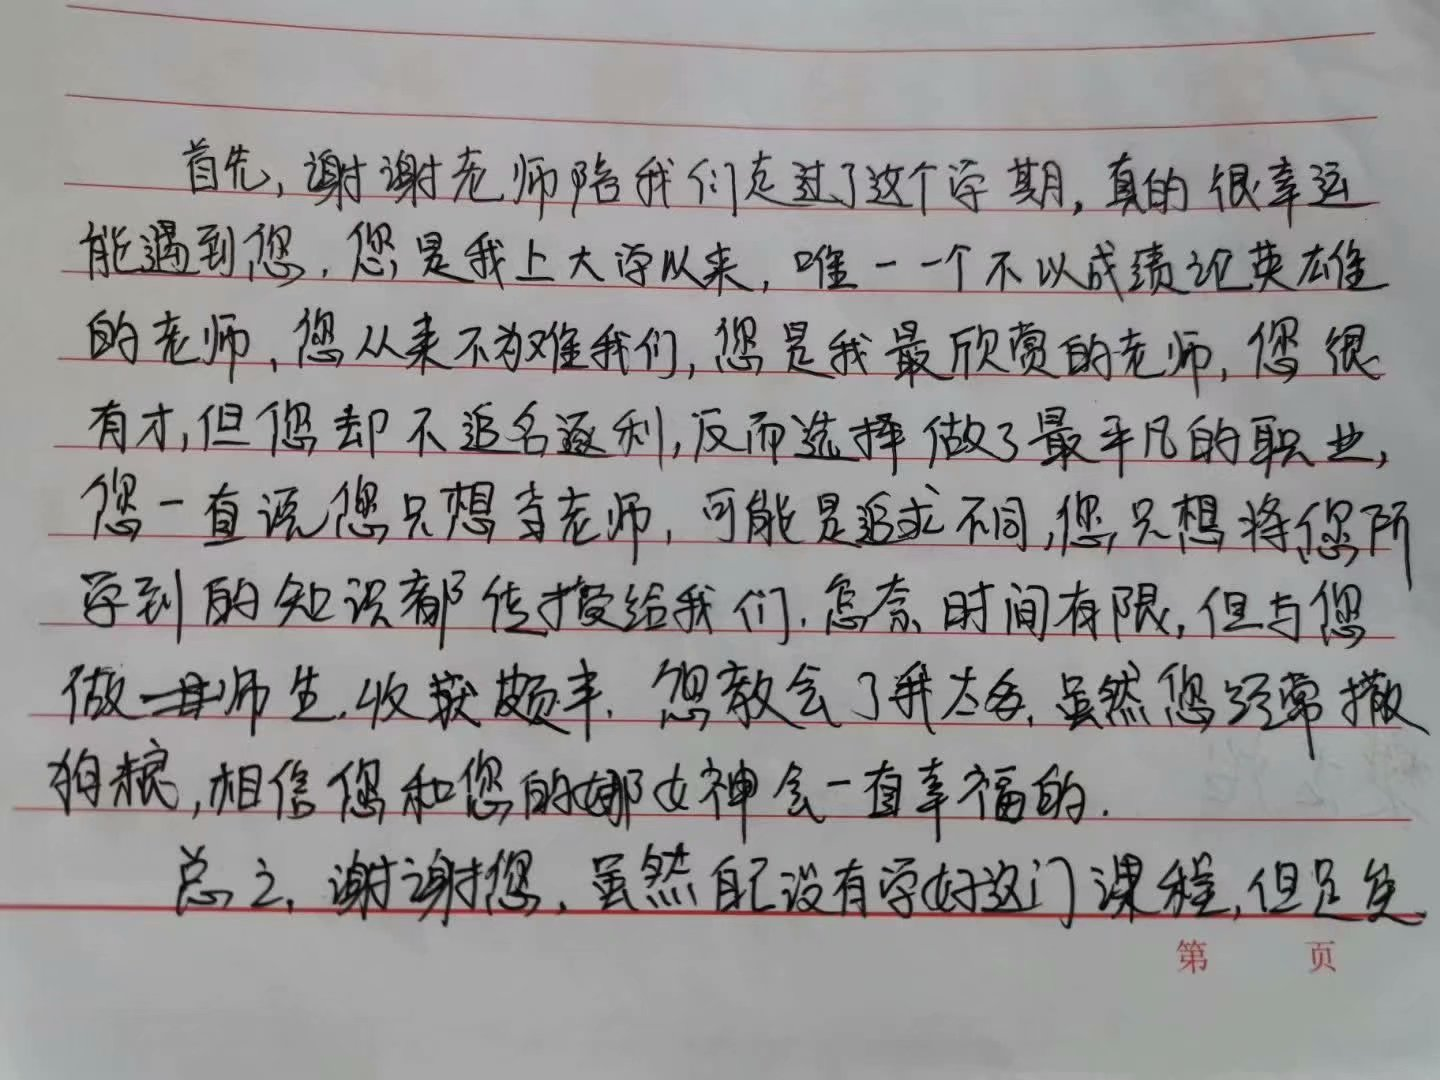 首先，谢谢老师陪我们走过了这个学期，真的很幸运
能遇到您，您是我上大学以来，唯一一个不以成绩论英雄
的老师，您从来不为难我们，您是我最欣赏的老师，您很
有才，但您却不追名逐利，反而选择做了最平凡的职业，
您一直说您只想当老师，可能是追求不同，您只想将您所
学到的知识都传授给我们．怎奈时间有限，但与您
做一世师生，收获颇丰．您教会了我太多，虽然您经常撒
狗粮，相信您和您的娜女神会一直幸福的．
总之，谢谢您，虽然自己没有学好这门课程，但足矣
第 页